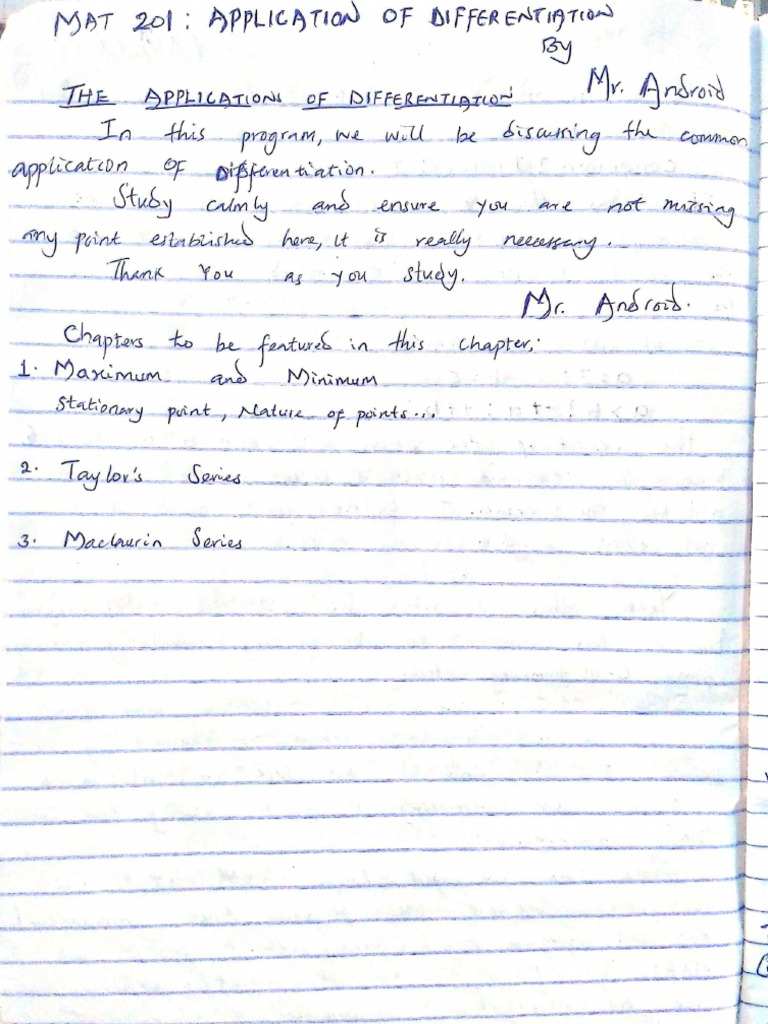 MAT 201: APPLICATION OF DIFFERENTIATION
By
Mr. Android
THE APPLICATIONS OF DIFFERENTIATION
In this program, we will be discussing the common
application OF Differentiation.
Study calmly and ensure you are not missing
any point established here, it is really necessary.
Thank You as you study.
Mr. Android.
Chapters to be featured in this chapter;
1. Maximum and Minimum
Stationary point, Nature of points...
2. Taylor's Series
3. Maclaurin Series